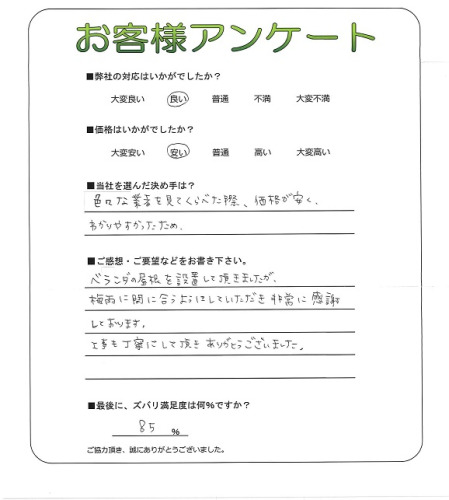 お客様アンケート
■弊社の対応はいかがでしたか？
大変良い 良い 普通 不満 大変不満
■価格はいかがでしたか？
大変安い 安い 普通 高い 大変高い
■当社を選んだ決め手は？
色々な業者を見てくらべた際、価格が安く、
わかりやすかったため。
■ご感想・ご要望などをお書き下さい。
ベランダの屋根を設置して頂きましたが、
梅雨に間に合うようにしていただき非常に感謝
しております。
工事も丁寧にして頂きありがとうございました。
■最後に、ズバリ満足度は何％ですか？
85 %
ご協力頂き、誠にありがとうございました。